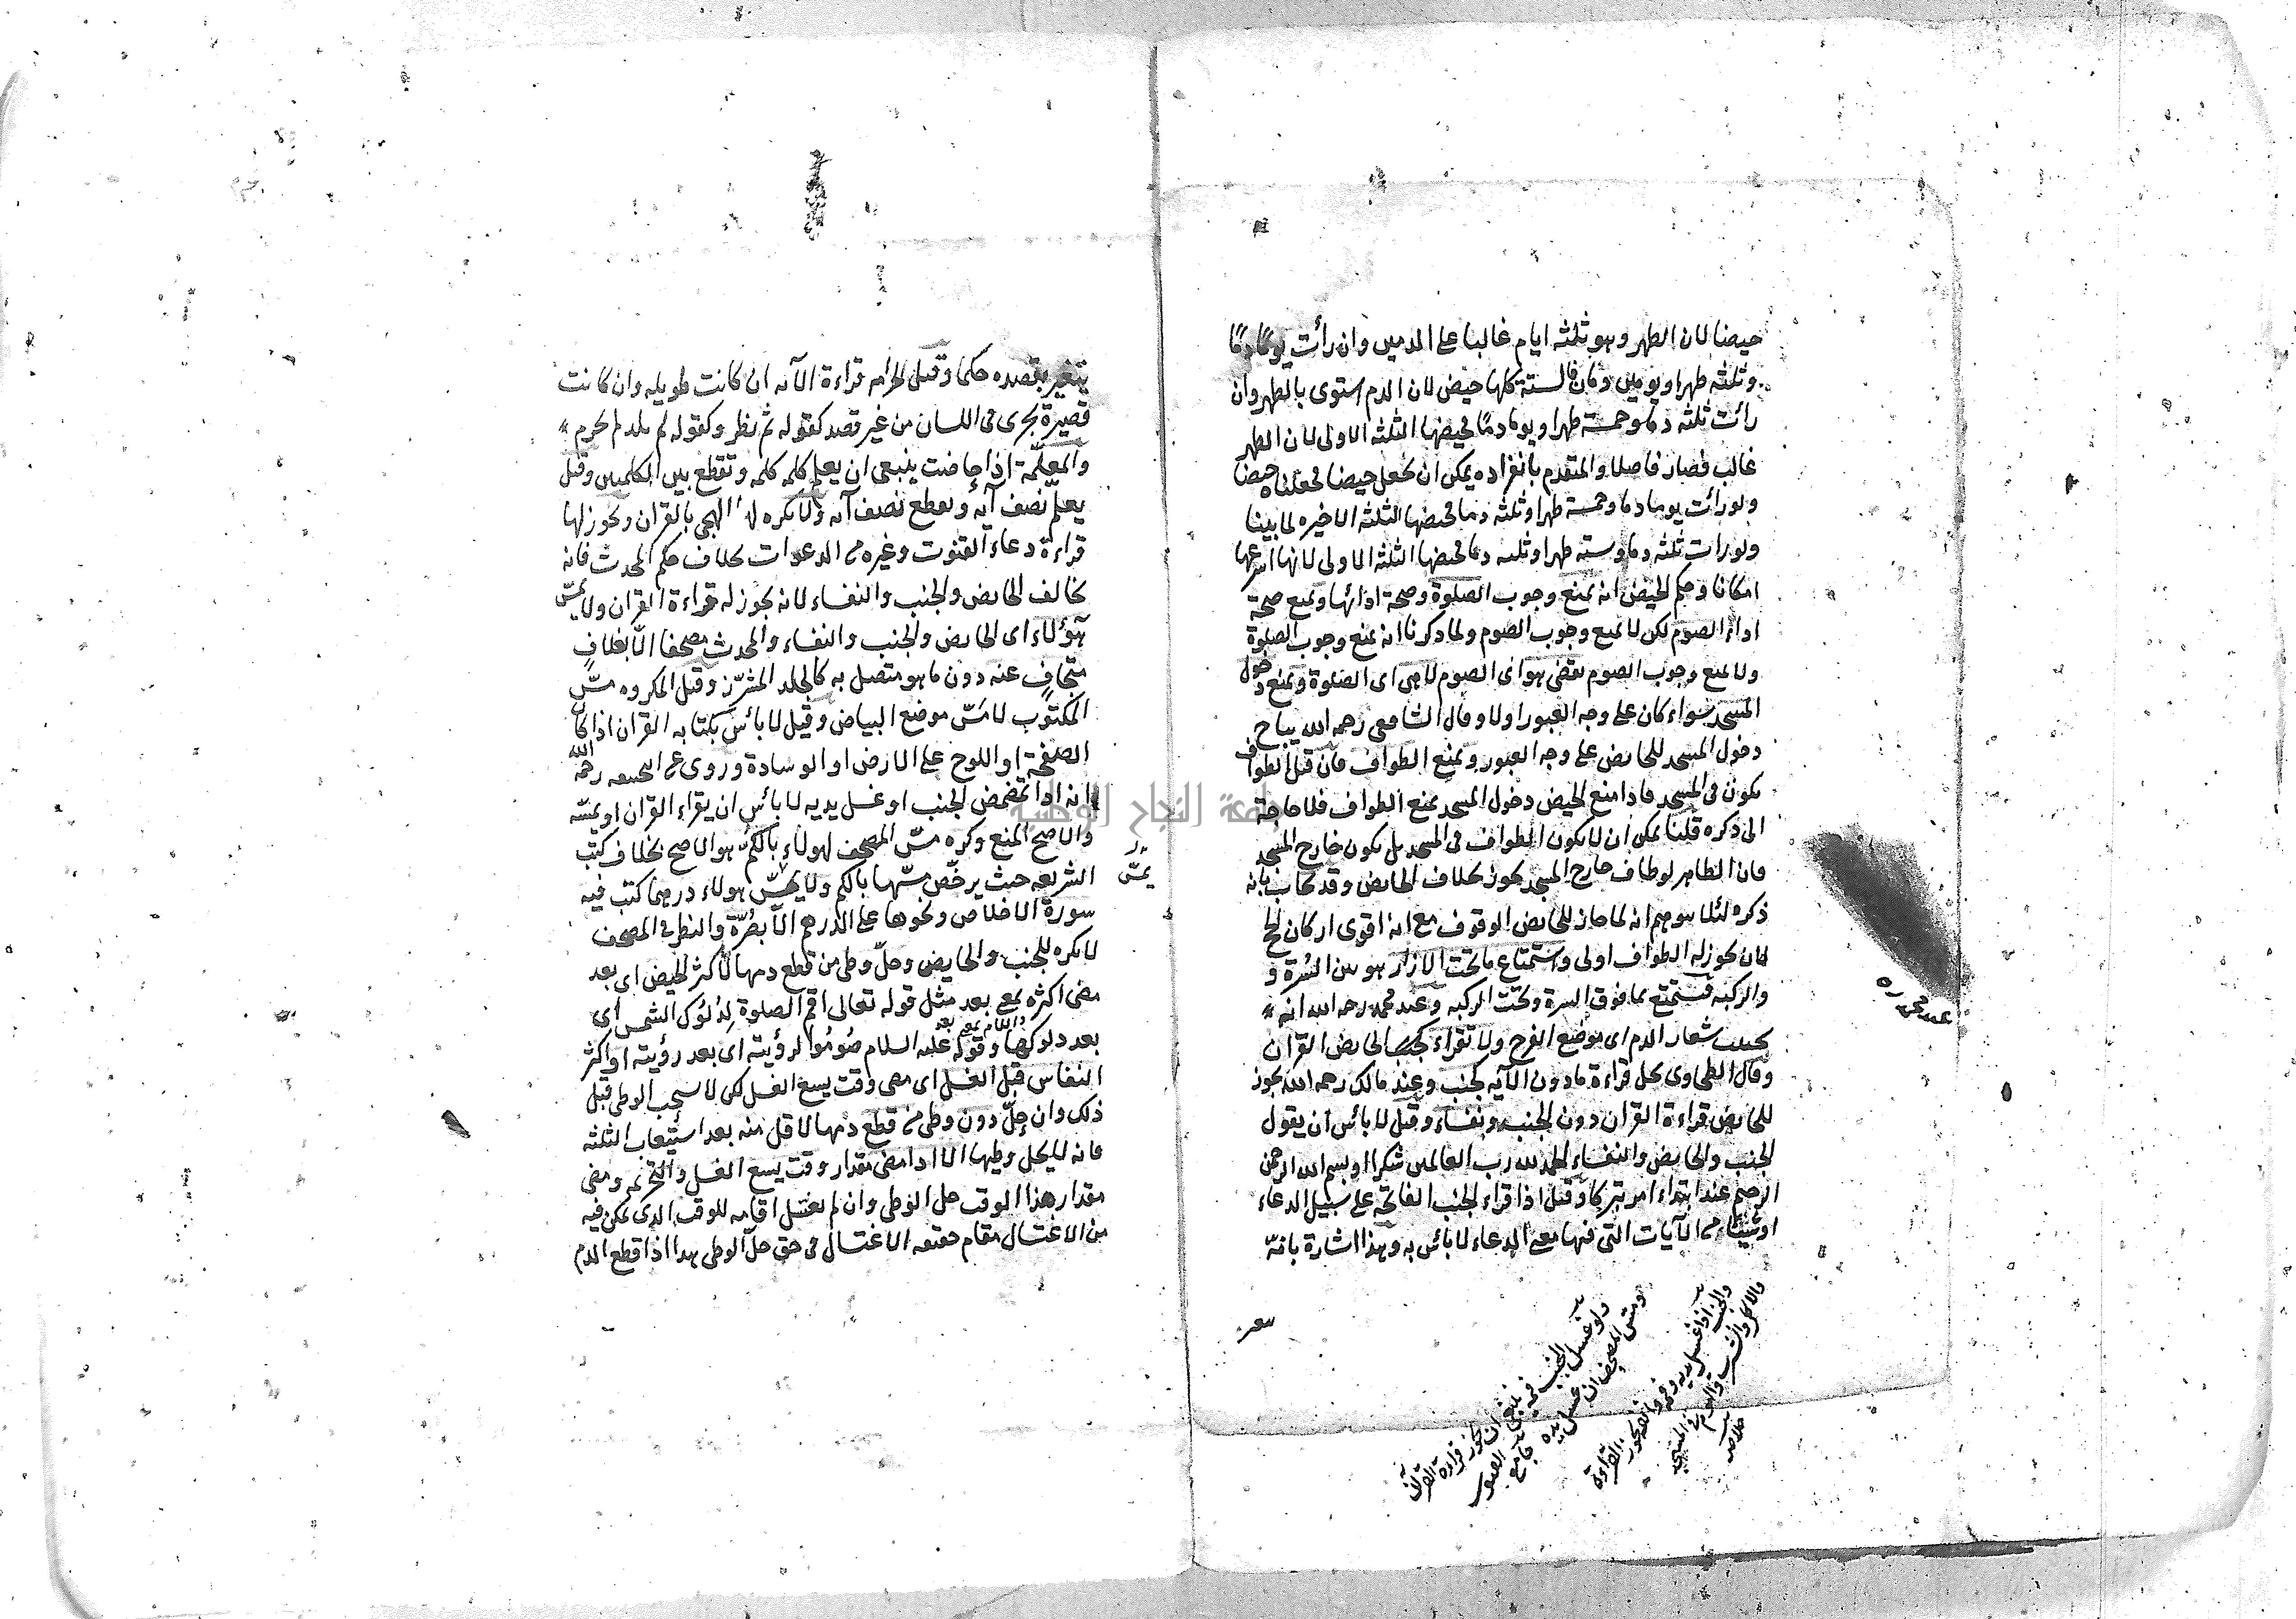 حيضا لان الطهر وهو ثلثه ايام غالبا على الدمين وان رأت يومًا دمًا
وثلثه طهرا ويومين دما فالستة كلها حيض لان الدم استوى بالطهر وان
رأت ثلثه دما وخمسة طهرا ويوما دمًا فحيضها الثلثه الاولى لان الطهر
غالب فصار فاصلا والمتقدم بانفراده يمكن ان يجعل حيضا فجعلناه حيضا
ولو رأت يوما دما وخمسة طهرا وثلثه دما فحيضها الثلثه الاخيره لما بينا
ولو رات ثلثه دما وسته طهرا وثلثه دما فحيضها الثلثه الاولى لانها اسرعها
امكانا وحكم الحيض انه يمنع وجوب الصلوة وصحة ادائها ويمنع صحة
اداء الصوم لكن لا يمنع وجوب الصوم ولما ذكرنا انه يمنع وجوب الصلوة
ولا يمنع وجوب الصوم يقضى هو اى الصوم لا هى اى الصلوة ويمنع دخول
المسجد سواء كان على وجه العبور اولا وقال الشافعى رحمه الله يباح
دخول المسجد للحايض على وجه العبور ويمنع الطواف فان قيل الطواف
يكون فى المسجد فاذا منع الحيض دخول المسجد يمنع الطواف فلا حاجة
الى ذكره قلنا يمكن ان لا يكون الطواف فى المسجد بل يكون خارج المسجد
فان الطاهر لو طاف خارج المسجد يجوز بخلاف الحايض وقد يجاب بانه
ذكره لئلا يتوهم انه لما جاز للحايض الوقوف مع انه اقوى اركان الحج
فلان يجوز له الطواف اولى واستمتاع ما تحت الازار هو بين السرة و
والركبه فيستمتع بما فوق السرة وتحت الركبه وعند محمد رحمه الله انه
يجتنب شعار الدم اى موضع الفرج ولا تقراء كجنب الحايض القران
وقال الطحاوى يحل قراءة ما دون الآيه كجنب وعند مالك رحمه الله يجوز
للحايض قراءة القران دون الجنب ونفساء وقيل لا بأس ان يقول
الجنب والحايض والنفساء الحمد لله رب العالمين شكرا او بسم الله الرحمن
الرحيم عند ابتداء امر تبركا وقيل اذا قراء الجنب الفاتحه على سبيل الدعاء
او شيئا من الآيات التى فيها معنى الدعاء لا بأس به وهذا اشارة بانه
ولو غسل الجنب فمه ينبغى ان يجوز قراءة القرآن
ومس المصحف ان غسل يده جامع
والجنب اذا غسل يديه وفمه
والاكل والشرب
يتغير بقصده حكما وقيل الحرامه قراءة الآيه ان كانت طويله وان كانت
قصيرة يجرى فى اللسان من غير قصد كقوله ثم نظر وكقوله لم يلد لم يحرم
والمعلّمة اذا حاضت ينبغى ان يعلم كلمه كلمه وتقطع بين الكلمتين وقيل
يعلم نصف آيه ويقطع نصف آيه ولا يكره لها التهجى بالقران ويجوز لها
قراءة دعاء القنوت وغيره من الدعوات بخلاف حكم المحدث فانه
يخالف الحايض والجنب والنفساء لانه يجوز له قراءة القران ولا يمسّ
هؤلاء اى الحايض والجنب والنفساء والمحدث مصحفا الّا بغلاف
متجافٍ عنه دون ما هو متصل به كالجلد المشرّز وقيل المكروه مسّ
المكتوب لا مَسّ موضع البياض وقيل لا بأس بكتابه القران اذا كان
الصفحة او اللوح على الارض او الوسادة وروى عن ابى حنيفه رحمه الله
انه اذا تمضمض الجنب او غسل يديه لا بأس ان يقراء القران او يمسّه
والاصح المنع وكره مسّ المصحف لهولاء بالكمّ هو الاصح بخلاف كتب
يمسّ
الشريعه حيث يرخّص مسّها بالكم ولا يمسّ هولاء درهما كتب فيه
سورة الاخلاص ونحوها على الدرهم الّا بصُرّة والنظر فى المصحف
لا يكره للجنب والحايض وحلّ وطى من قطع دمها لاكثر الحيض اى بعد
مضى اكثره بمعنى بعد مثل قوله تعالى اقم الصلوة لِدُلُوك الشمس اى
بعد دلوكها وقوله عليه السلام صُومُوا لرؤيته اى بعد رؤيته او اكثر
النفاس قبل الغسل اى مضى وقت يسع الغسل لكن لا يستحب الوطى قبل
ذلك وان حلّ دون وطى من قطع دمها لاقل منه بعد استيعاب الثلثه
فانه لا يحل وطيها الا اذا مضى مقدار وقت يسع الغسل والتحريمه ومضى
مقدار هذا الوقت حل الوطى وان لم يغتسل اقامه للوقت الذى يمكن فيه
من الاغتسال مقام حقيقه الاغتسال فى حق حلّ الوطى هذا اذا قطع الدم
جامعة النجاح الوطنية